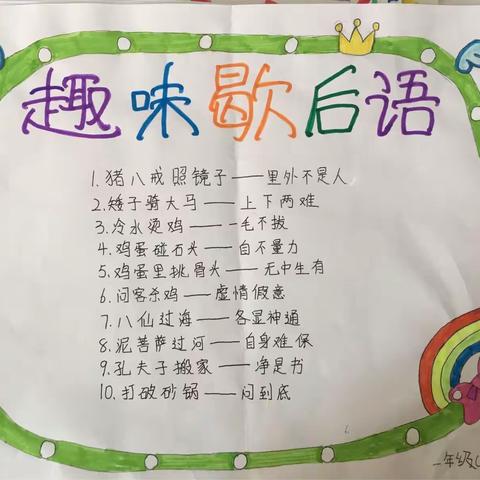 趣味歇后语
1.猪八戒照镜子——里外不是人
2.矮子骑大马——上下两难
3.冷水烫鸡——一毛不拔
4.鸡蛋碰石头——自不量力
5.鸡蛋里挑骨头——无中生有
6.问客杀鸡——虚情假意
7.八仙过海——各显神通
8.泥菩萨过河——自身难保
9.孔夫子搬家——净是书
10.打破砂锅——问到底
年级